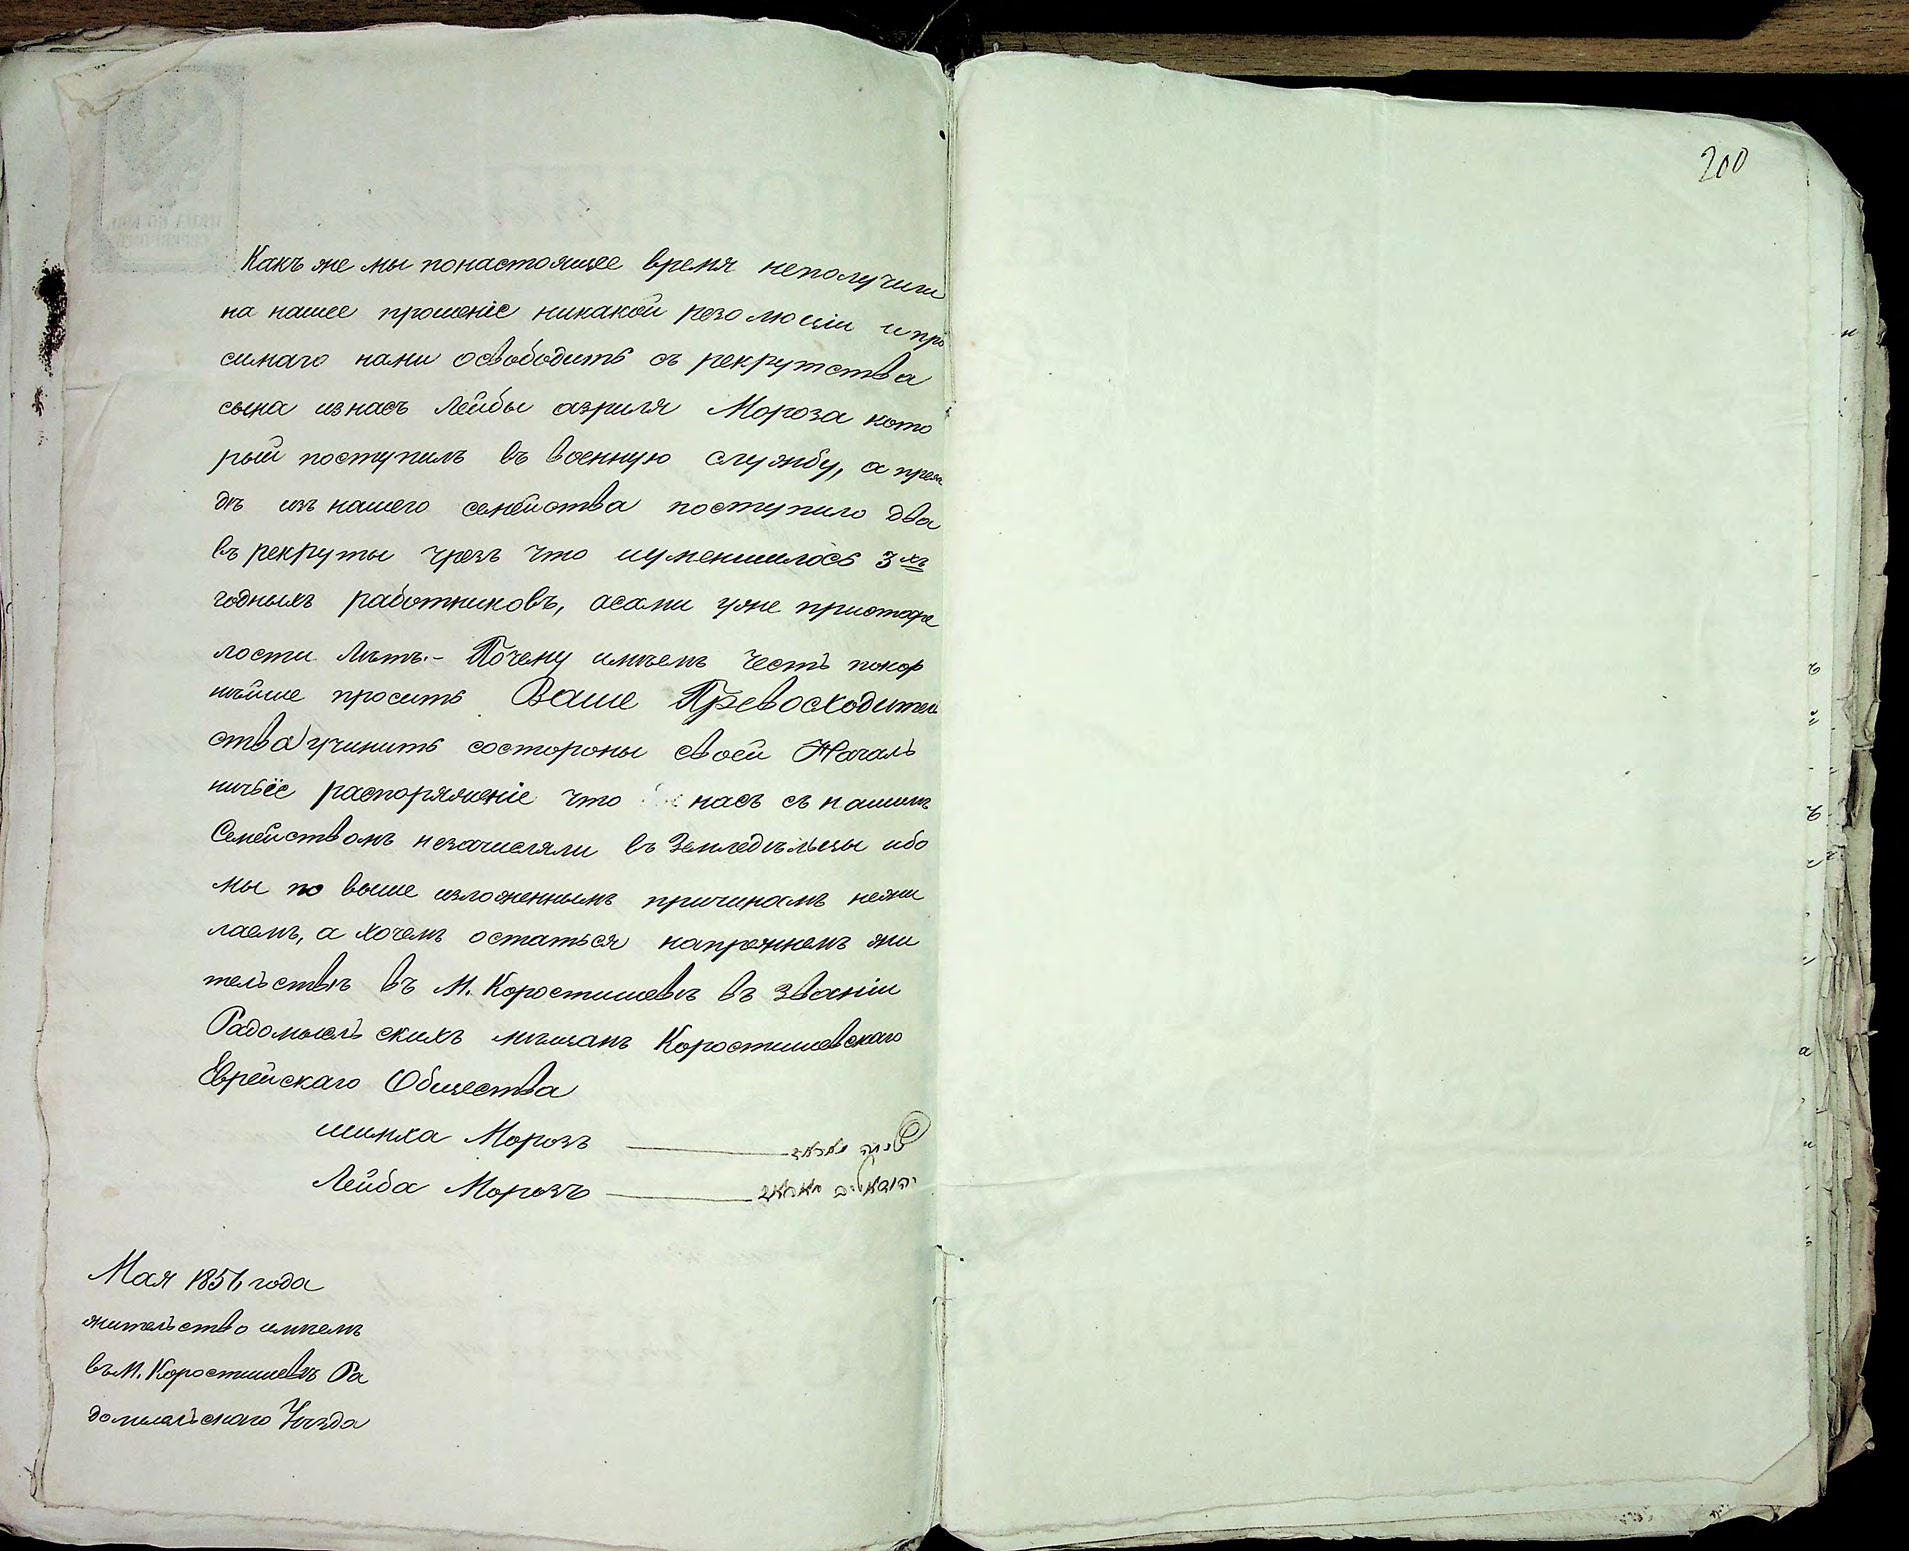 200
Какъ же мы понастоящее время неполучили
на нашее прошеніе никакой резолюціи и про
симаго нами освободить съ рекрутства
сына изнасъ Лейбы азриля Мороза кото
рый поступилъ въ военную службу, а преж
дѣ изъ нашего семейства поступило два
въ рекруты чрезъ что иуменшилось 3хъ
годныхъ работниковъ, асами уже пристаре
лости лѣтъ.- Почему имѣемъ честь покор
нѣйше просить Ваше Превосходитель
ства учинить состороны своей Началь
ничьёе распоряженіе что насъ съ нашимъ
Семействомъ незачисляли въ Земледѣльцы ибо
мы по выше изложеннымъ причинамъ нежи
лаемъ, а хочемъ остаться напрежнемъ жи
тельствѣ въ М. Коростишевѣ въ званіи
Радомысльскихъ мѣщанъ Коростишевскаго
Еврейскаго Общества
шимха Морозъ
Лейба Морозъ
Мая 1856 года
жительство имѣемъ
въ М. Коростишевѣ Ра
домысльскаго Уѣзда